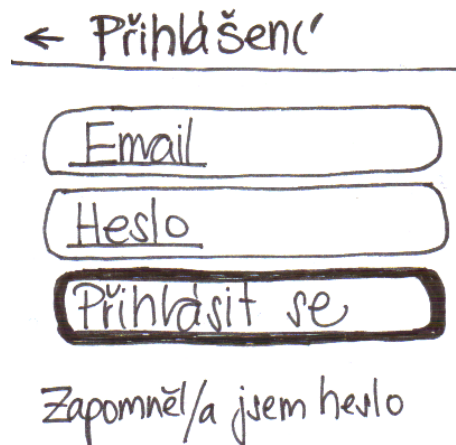 ← Přihlášení
Email
Heslo
Přihlásit se
Zapomněl/a jsem heslo